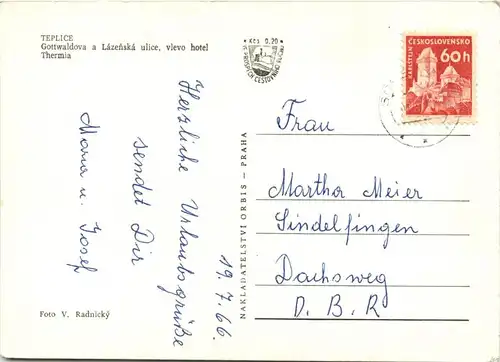 TEPLICE
Gottwaldova a Lázeňská ulice, vlevo hotel
Thermia
Kčs 0,20
VE PROSPĚCH CESTOVNÍHO RUCHU
ČESKOSLOVENSKO
60h
KARLŠTEJN
19.7.66.
Herzliche Urlaubsgrüße
sendet Dir
Maria u. Josef
NAKLADATELSTVÍ ORBIS - PRAHA
Frau
Martha Meier
Sindelfingen
Dachsweg
D.B.R
Foto V. Radnický